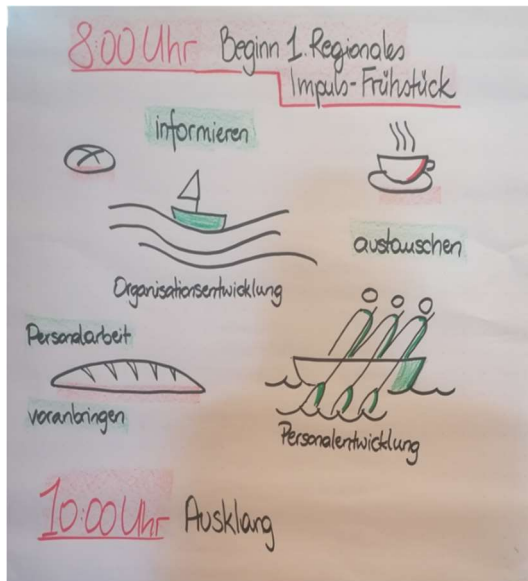 8:00 Uhr Beginn 1. Regionales
Impuls-Frühstück
informieren
austauschen
Organisationsentwicklung
Personalarbeit
voranbringen
Personalentwicklung
10:00 Uhr Ausklang